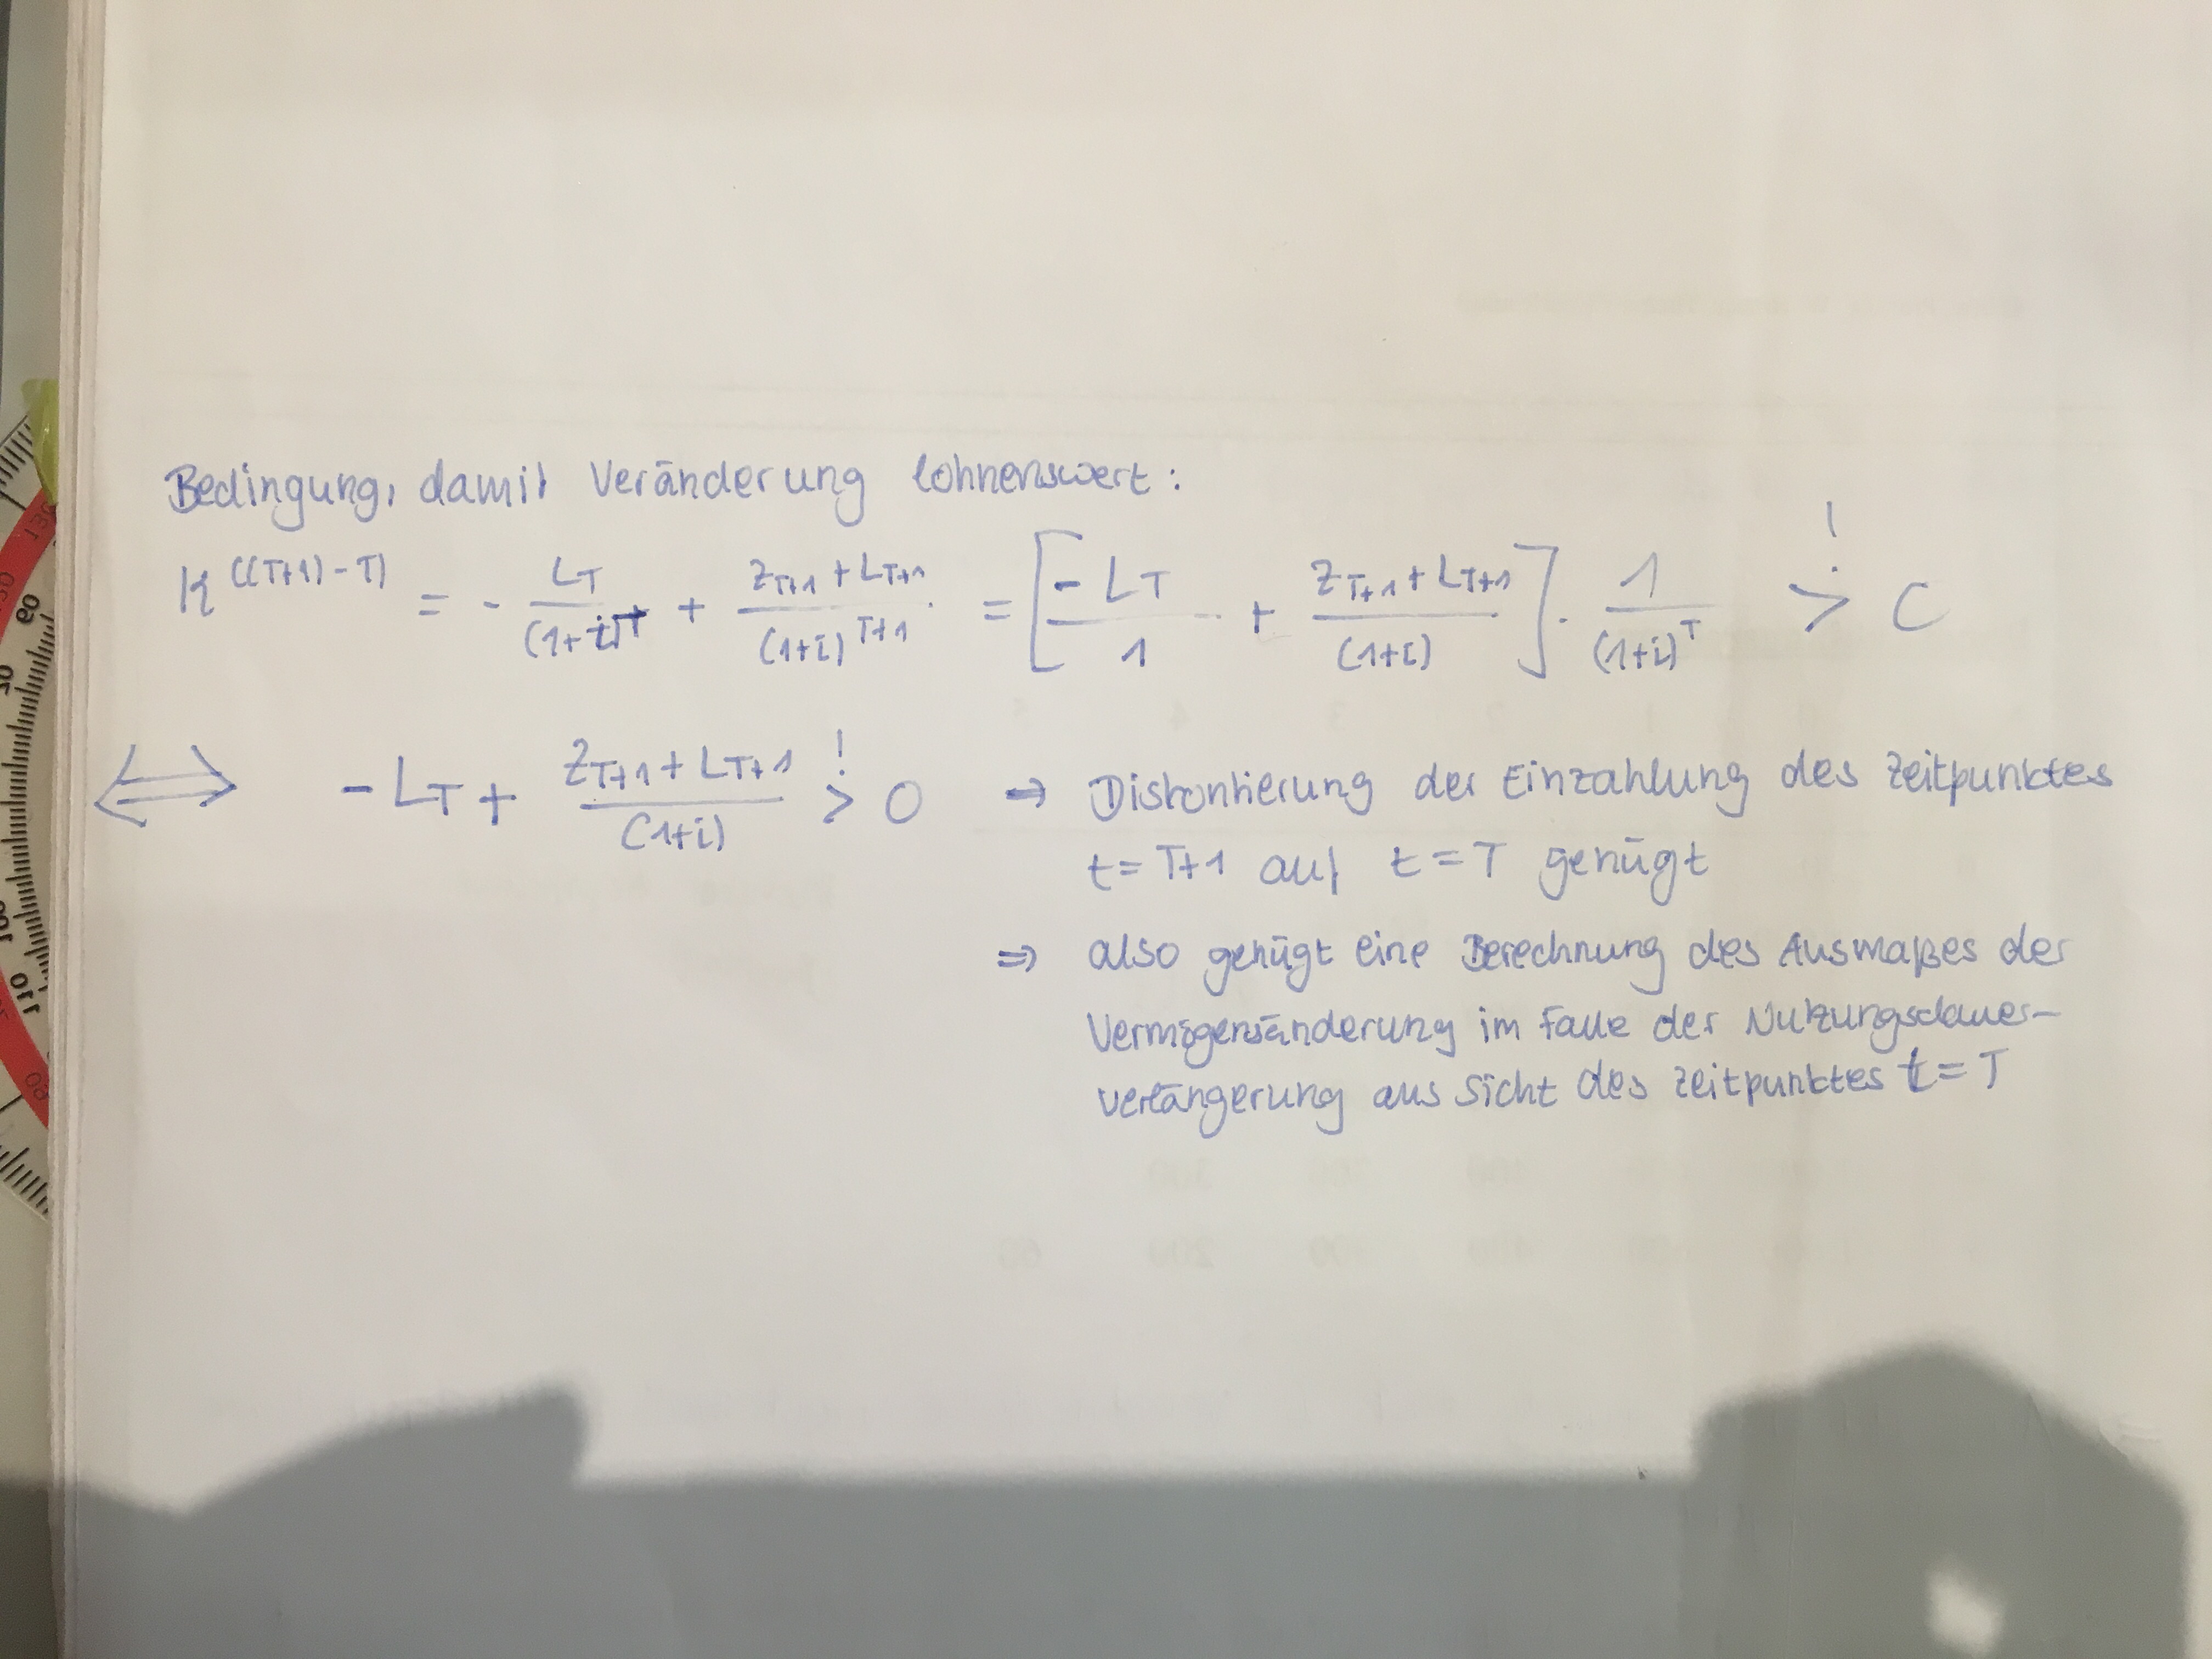 Bedingung, damit Veränderung lohnenswert:
K^((T+1)-T) = - L_T/(1+i)^T + (Z_{T+1} + L_{T+1})/(1+i)^{T+1} = [-L_T/1 + (Z_{T+1} + L_{T+1})/(1+i)] · 1/(1+i)^T >! 0
⟺ -L_T + (Z_{T+1} + L_{T+1})/(1+i) >! 0 → Diskontierung der Einzahlung des Zeitpunktes
t = T+1 auf t = T genügt
⇒ also genügt eine Berechnung des Ausmaßes der
Vermögensänderung im Falle der Nutzungsdauer-
verlängerung aus Sicht des Zeitpunktes t = T